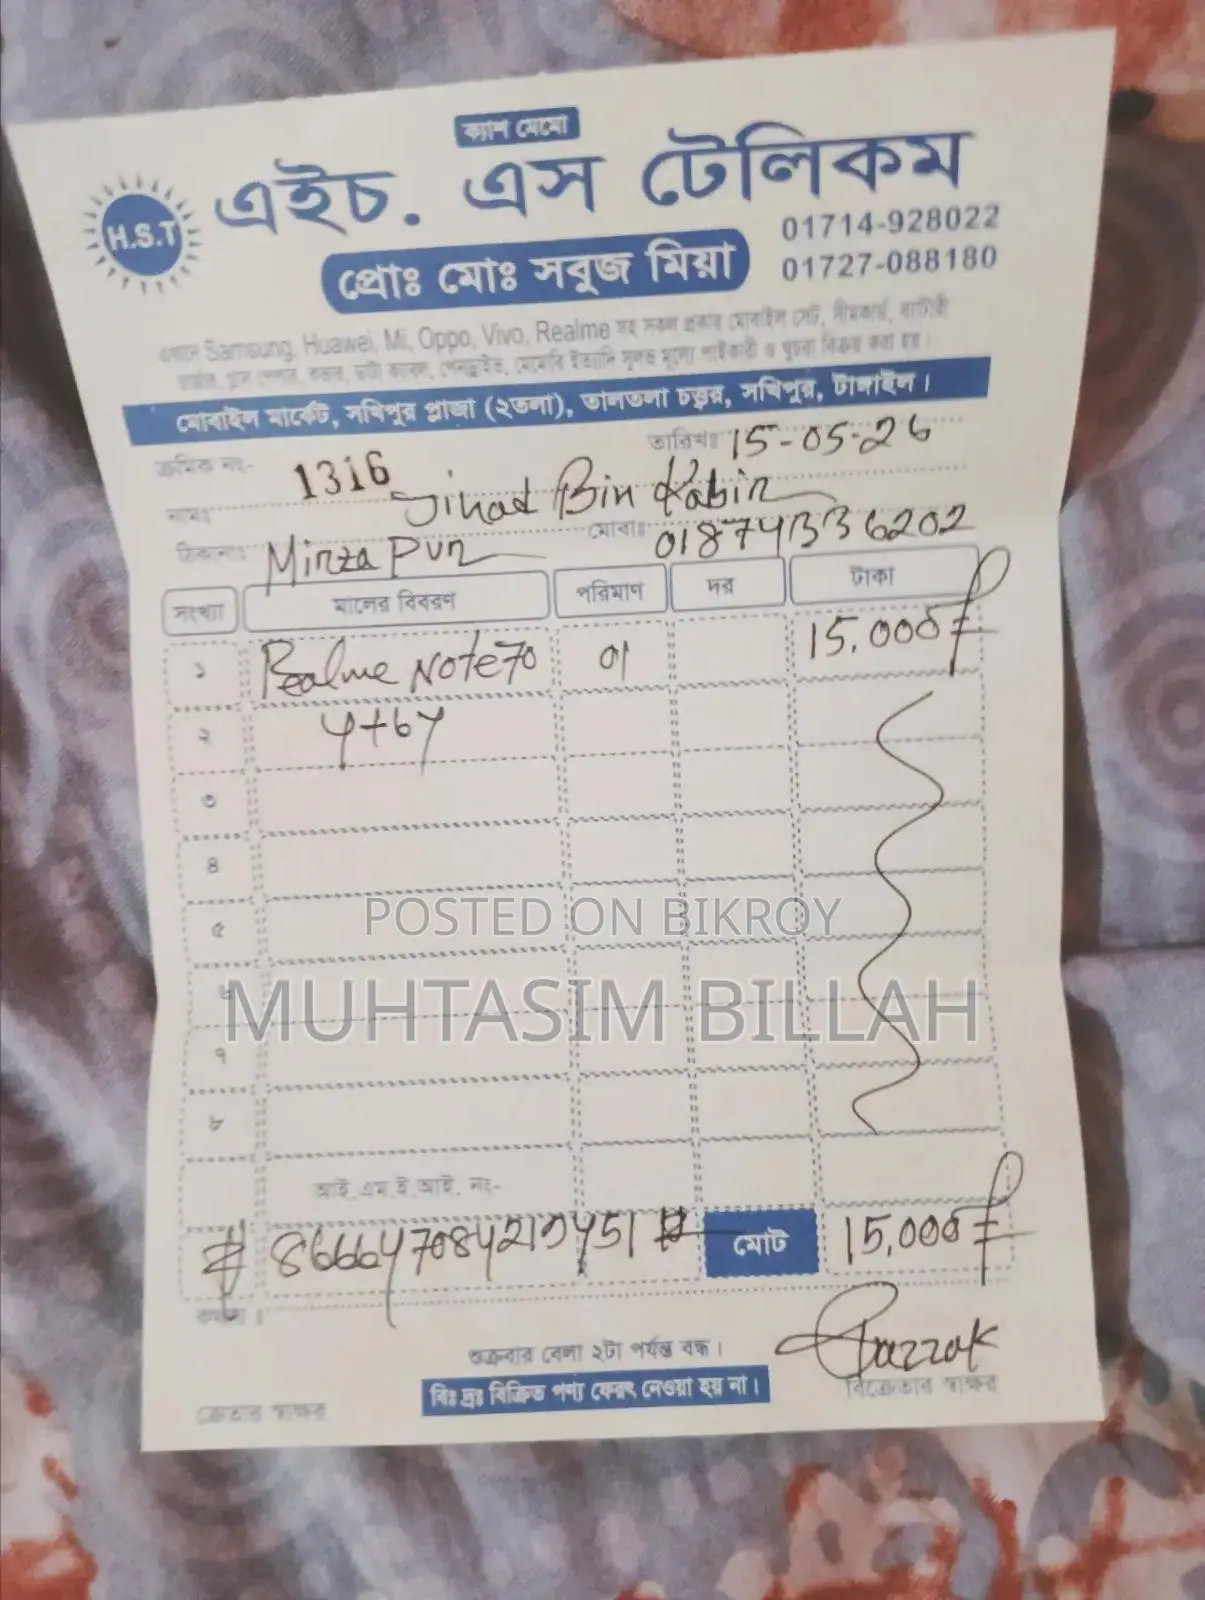 ক্যাশ মেমো
H.S.T
এইচ. এস টেলিকম
প্রোঃ মোঃ সবুজ মিয়া
01714-928022
01727-088180
এখানে Samsung, Huawei, Mi, Oppo, Vivo, Realme সহ সকল প্রকার মোবাইল সেট, সীমকার্ড, ব্যাটারী
চার্জার, গ্লাস পেপার, কভার, ডাটা ক্যাবল, পেনড্রাইভ, মেমোরি ইত্যাদি সুলভ মূল্যে পাইকারী ও খুচরা বিক্রয় করা হয়।
মোবাইল মার্কেট, সখিপুর প্লাজা (২তলা), তালতলা চত্ত্বর, সখিপুর, টাঙ্গাইল।
ক্রমিক নং- 1316 তারিখঃ 15-05-26
নামঃ Jihad Bin Kabir
ঠিকানাঃ Mirzapur মোবাঃ 01874336202
সংখ্যা মালের বিবরণ পরিমাণ দর টাকা
১ Realme Note 70 01 15,000/-
২ 4+64
৩
৪
৫
POSTED ON BIKROY
৬
MUHTASIM BILLAH
৭
৮
আই.এম.ই.আই. নং-
# 866647084210451 # মোট 15,000/-
শুক্রবার বেলা ২টা পর্যন্ত বন্ধ।
Razzak
বিঃ দ্রঃ বিক্রিত পণ্য ফেরৎ নেওয়া হয় না।
ক্রেতার স্বাক্ষর বিক্রেতার স্বাক্ষর